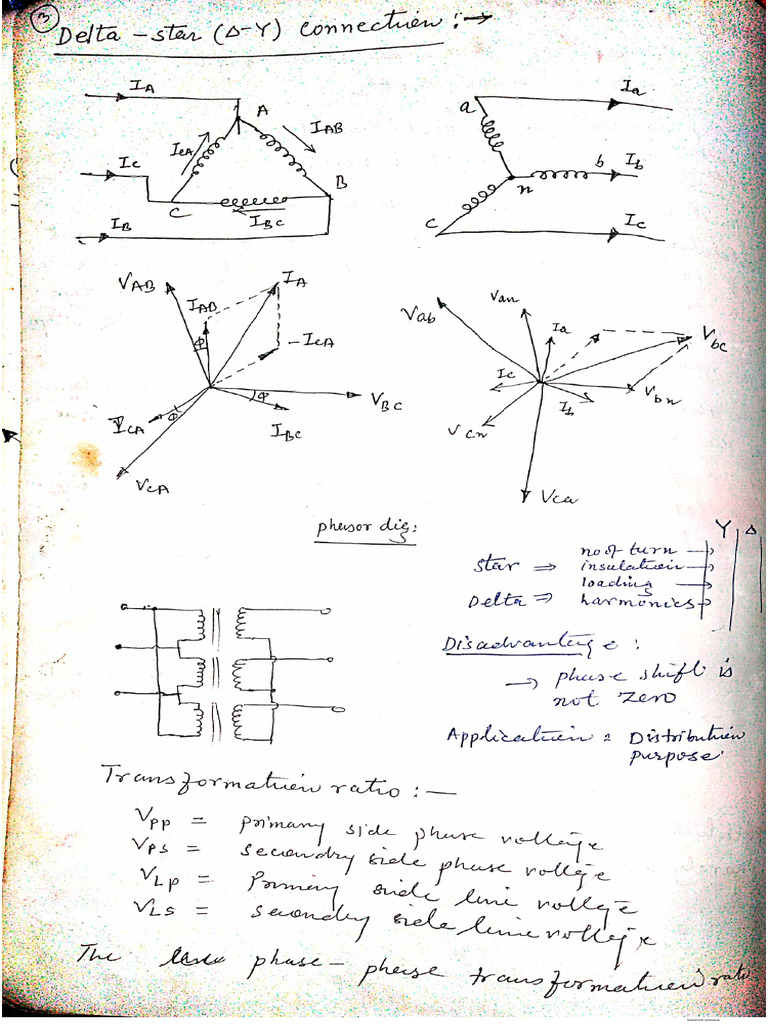 3
Delta - star (Δ-Y) connection :→
I_A
A
I_CA
I_AB
I_C
B
C
I_BC
I_B
a
I_a
b
I_b
n
C
I_c
V_AB
I_AB
I_A
φ
-I_CA
φ
V_BC
I_CA
φ
I_BC
V_CA
V_ab
V_an
I_a
V_bc
I_c
I_b
V_bn
V_cn
V_ca
phasor dig:
Y Δ
Star ⇒ no of turn →
insulation →
loading →
Delta ⇒ harmonics →
Disadvantage :
→ phase shift is
not zero
Application : Distribution
purpose
Transformation ratio :—
V_PP = primary side phase voltage
V_PS = secondry side phase voltge
V_LP = Priminy side line voltge
V_LS = secondry side line voltge
The phase - phase transformation ratio